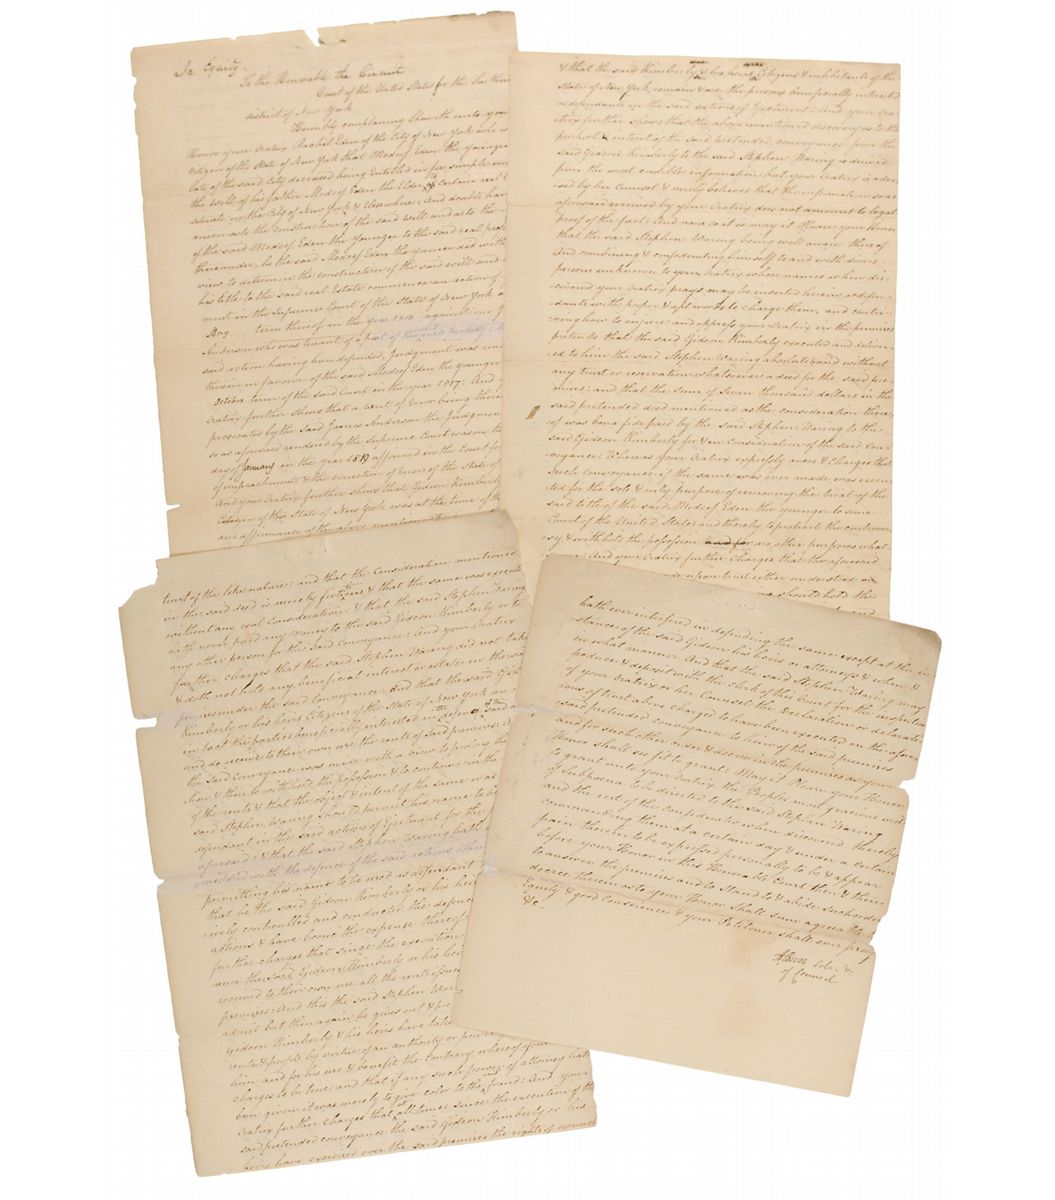 In Equity.
To the Honorable the Circuit
Court of the United States for the Southern
district of New York
Humbly complaining sheweth unto your
Honor your Oratrix Rachel Eden of the City of New York who is
Citizen of the State of New York that Medcef Eden the younger
late of the said City deceased being Entitled in fee simple un
the will of his father Medcef Eden the Elder to certain real E
situate in the City of New York & Elsewhere: And doubts hav
arisen as to the Construction of the said will and as to the
of the said Medcef Eden the Younger to the said real prop
thereunder, he the said Medcef Eden the younger did with
view to determine the construction of the said will and
his title to the said real Estate commence an action of
ment in the Supreme Court of the State of New York
May term thereof in the year 1816 against one J
Anderson who was tenant of a part of the
said action having been defended, Judgment was ren
therein in favour of the said Medcef Eden the younger
term of the said Court in the year 1817: And
Oratrix further shews that a writ of Error being there
prosecuted by the said James Anderson the Judgment
so as aforesaid rendered by the Supreme Court was on the
day of January in the year 1819 affirmed in the Court for
of impeachments & the correction of Errors of the State of
And your Oratrix further shews that Gideon Kimberly
Citizen of the State of New York was at the time of the
and affirmance of the above mentioned
& that the said Kimberly & his heirs Citizens & inhabitants of the
State of New York, remain & are the persons beneficially interested
as defendants in the said actions of Ejectment. And your Ora-
trix further shews that the above mentioned discovery as to the
purport & intent of the said pretended conveyance from the
said Gideon Kimberly to the said Stephen Waring is derived
from the most credible information but your Oratrix is advi-
sed by her Counsel & verily believes that the information so as
aforesaid received by your Oratrix does not amount to legal
proof of the fact: And now so it is may it Please your Honor
that the said Stephen Waring being well aware thereof
And combining & confederating himself to and with divers
persons unknown to your Oratrix whose names when dis-
covered your Oratrix prays may be inserted herein as defen-
dants with proper & apt words to charge them, and contri-
ving how to injure and oppress your Oratrix in the premises
pretends that the said Gideon Kimberly executed and deliver-
ed to him the said Stephen Waring absolute and without
any trust or reservation whatsoever a deed for the said pre-
mises: and that the Sum of Seven thousand dollars in the
said pretended deed mentioned as the consideration there-
of was bona fide paid by the said Stephen Waring to the
said Gideon Kimberly for & in consideration of the said con-
veyance: Whereas your Oratrix expressly avers & Charges that
such conveyance if the same was ever made was execu-
ted for the sole & only purpose of removing the trial of the
said title of the said Medcef Eden the younger to some
Court of the United States and thereby to protract the controver-
sy & withhold the possession and for no other purposes what-
: And your Oratrix further Charges that the aforesaid
upon trust either understood or
should hold the
trust of the like nature: and that the Consideration mentioned
in the said deed is merely fictitious & that the same was execute
without any real Consideration & that the said Stephen Waring
hath never paid any Money to the said Gideon Kimberly or to
any other person for the said Conveyance: And your Oratrix
further charges that the said Stephen Waring did not take
& doth not hold any beneficial interest or estate in the said
premises under the said Conveyance. And that the said Gideon
Kimberly or his heirs Citizens of the State of New York are
in fact the parties beneficially interested in the defence
and do receive to their own use the rents of said premises:
the said Conveyance was made with a view to prolong the
tion & thus to withhold the possession & to continue in the
of the rents & that the object & intent of the same was
said Stephen Waring should permit his name to be
defendant in the said actions of Ejectment for the
aforesaid: & that the said Stephen Waring hath
meddled with the defence of the said actions
permitting his name to be used as defendant
that he the said Gideon Kimberly or his heir
sively controulled and conducted the defence
actions & have borne the expense thereof
further charges that since the execution
ance the said Gideon Kimberly or his heir
received to their own use all the rents issue
premises: And this the said Stephen War
admit but then again he gives out & pre
Gideon Kimberly & his heirs have take
rents & profits by virtue of an authority or power
him and for his use & benefit the contrary whereof your
charges to be true and that if any such power of attorney hath
been given it was merely to give color to the fraud: And your
Oratrix further charges that at all times since the execution of the
said pretended conveyance the said Gideon Kimberly or his
heirs have exercised over the said premises the rights of owners
hath ever interfered in defending the same except at the in
stances of the said Gideon his heirs or attorneys & when &
in what manner. And that the said Stephen Waring may
produce & deposit with the clerk of this Court for the inspection
of your Oratrix or her Counsel the declaration or declarati-
ons of trust above charged to have been executed on the afore
said pretended conveyance to him of the said premises
and for such other order & decree in the premises as your
Honor shall see fit to grant: May it Please your Honor
to grant unto your Oratrix the Peoples most gracious writ
of Subpoena to be directed to the said Stephen Waring
and the rest of the confederates when discovered thereby
commanding them at a certain day & under a certain
pain therein to be expressed personally to be & appear
before your Honor in this Honorable Court then & there
to answer the premises and to Stand to & abide such order &
decree therein as to your Honor Shall seem agreeable to
Equity & good Conscience & your Petitioner shall ever pray
&c
A. Burr Solr. &
of Counsel